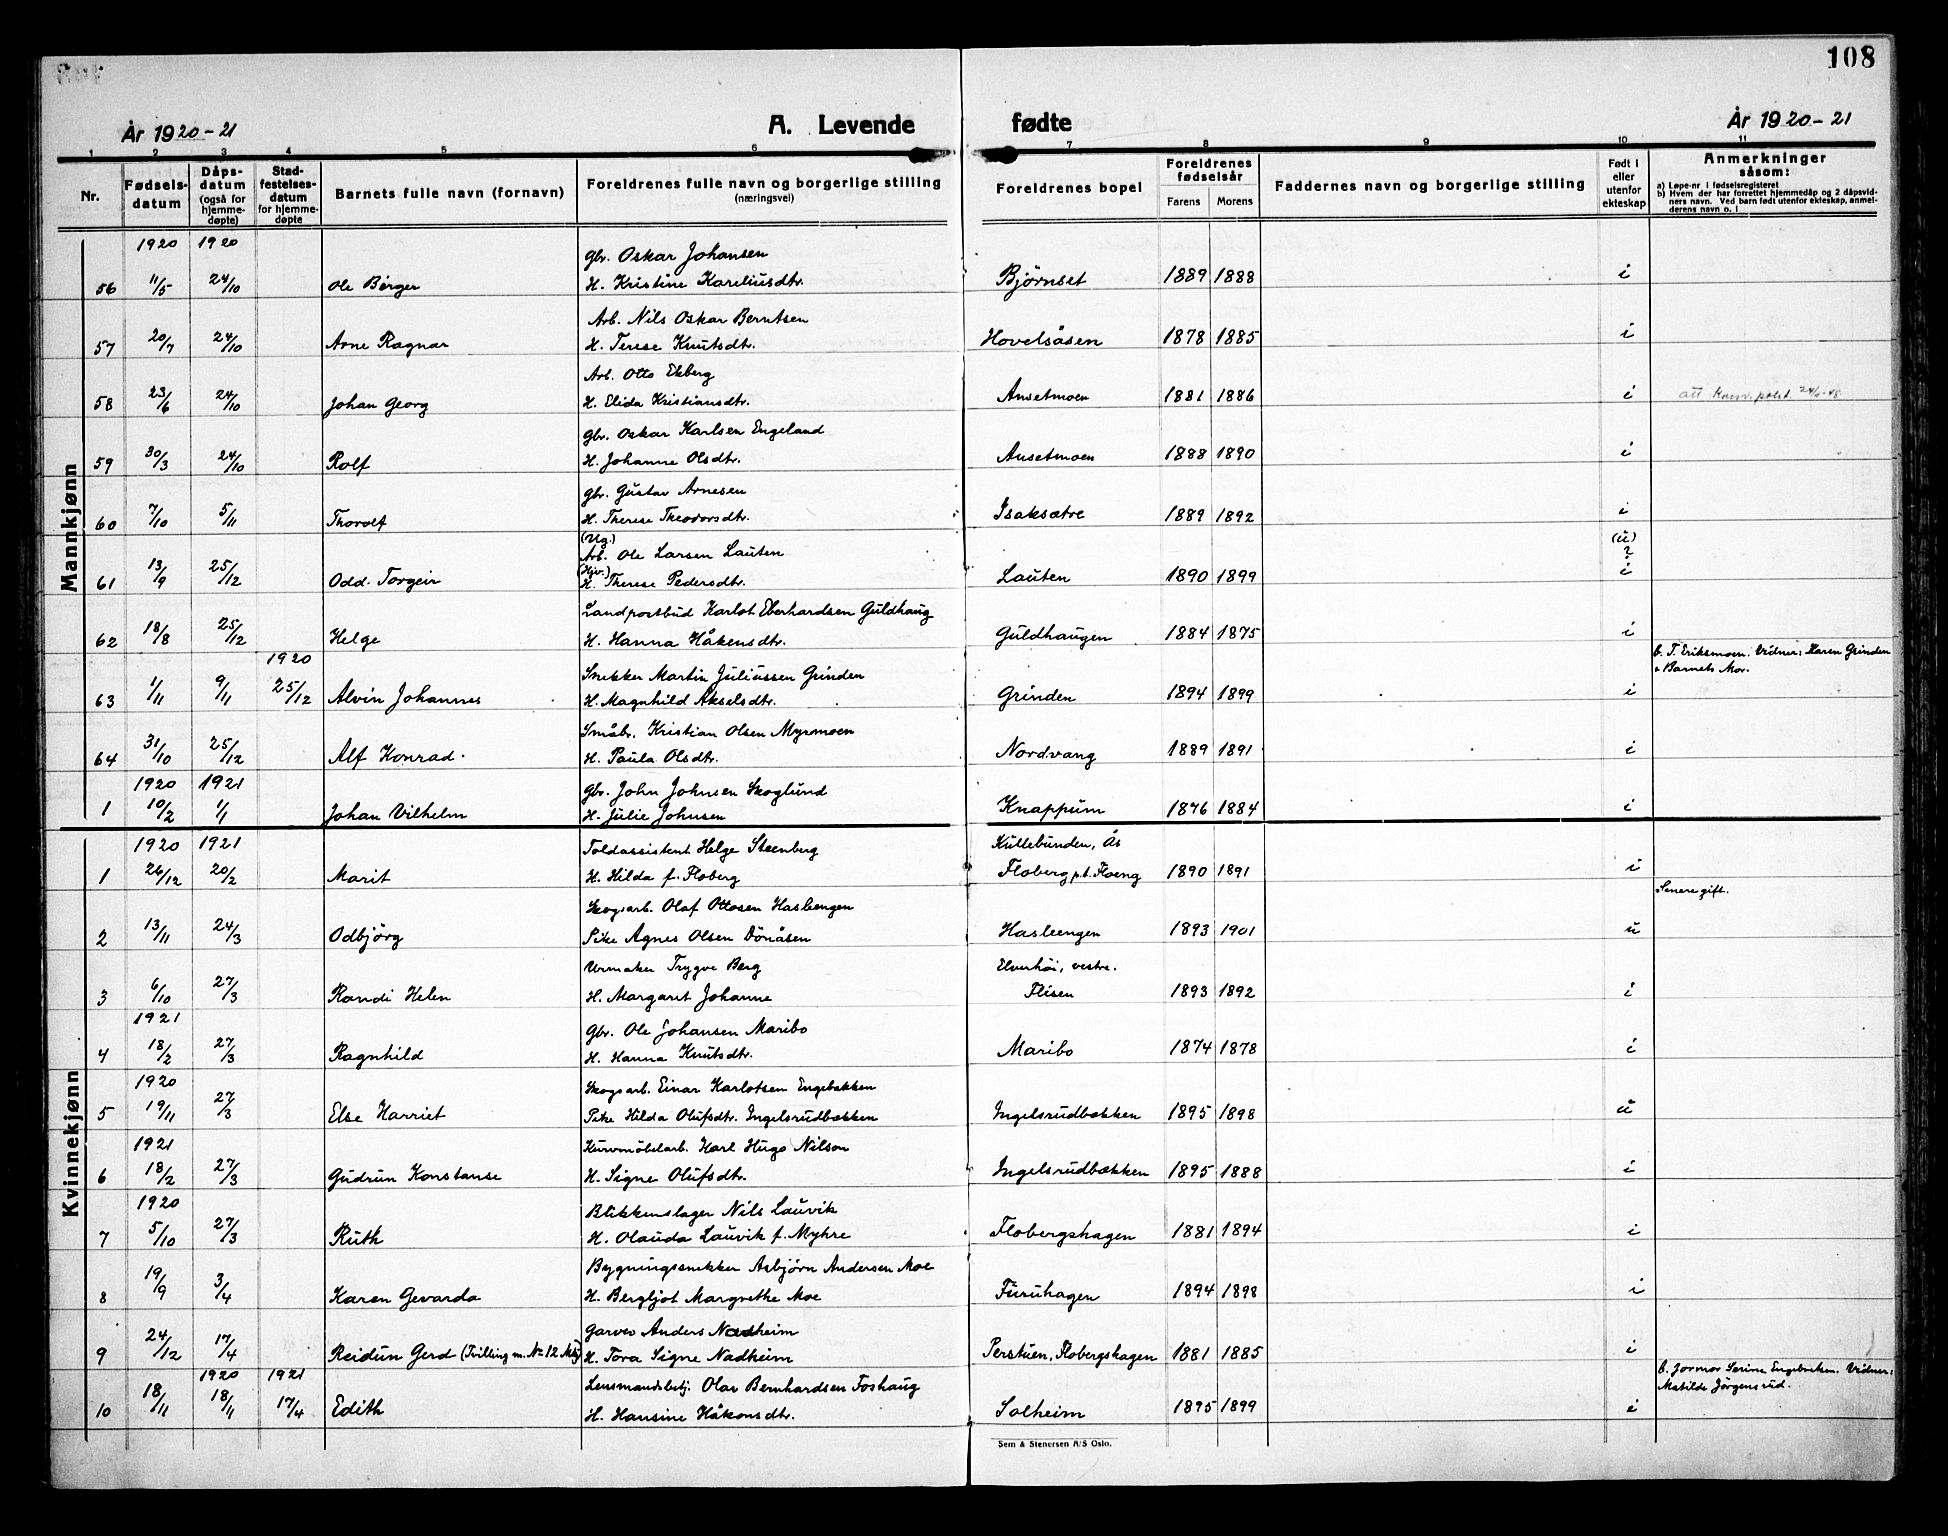 108
År 1920-21
A. Levende
fødte
År 1920-21
1 2 3 4 5 6 7 8 9 10 11
Nr.
Fødsels-
datum
Dåps-
datum
(også for
hjemme-
døpte)
Stad-
festelses-
datum
for hjemme-
døpte
Barnets fulle navn (fornavn)
Foreldrenes fulle navn og borgerlige stilling
(næringsvei)
Foreldrenes bopel
Foreldrenes
fødselsår
Farens Morens
Faddernes navn og borgerlige stilling
Født i
eller
utenfor
ekteskap
Anmerkninger
såsom:
a) Løpe-nr i fødselsregisteret
b) Hvem der har forrettet hjemmedåp og 2 dåpsvid-
ners navn. Ved barn født utenfor ekteskap, anmel-
derens navn o. l
Mannkjønn
1920 1920 gbr. Oskar Johansen
56 11/5 24/10 Ole Birger H. Kristine Kareliusdtr. Bjørnset 1889 1888 i
Arb. Nils Oskar Berntsen
57 20/7 24/10 Arne Ragnar H. Terese Knutsdtr. Hovelsåsen 1878 1885 i
Arb. Otto Ekberg
58 23/6 24/10 Johan Georg H. Elida Kristiansdtr. Ansetmoen 1881 1886 i att
gbr. Oskar Karlsen Engeland
59 30/3 24/10 Rolf H. Johanne Olsdtr. Ansetmoen 1888 1890 i
gbr. Gustav Arnesen
60 7/10 5/11 Thorolf H. Therese Theodorsdtr. Isaksætre 1889 1892 i
(Ug.) (u)
Arb. Ole Larsen Lauten ?
(Hjv.)
61 13/9 25/12 Odd Torgeir H. Therese Pedersdtr. Lauten 1890 1899 i
Landpostbud Karlot Eberhardsen Guldhaug
62 18/8 25/12 Helge H. Hanna Håkensdtr. Guldhaugen 1884 1875 i
1920 Snekker Martin Juliussen Grinden b. T. Eriksmoen. Vidner: Karen Grinden
& Barnets Mor.
63 1/11 9/11 25/12 Alvin Johannes H. Magnhild Akselsdtr. Grinden 1894 1899 i
Småbr. Kristian Olsen Myrmoen
64 31/10 25/12 Alf Konrad. H. Paula Olsdtr. Nordvang 1889 1891 i
1920 1921 gbr. John Johnsen Skoglund
1 10/2 1/1 Johan Vilhelm H. Julie Johnsen Knappum 1876 1884 i
Kvinnekjønn
1920 1921 Toldassistent Helge Steenberg Kullebunden, Ås
1 26/12 20/2 Marit H. Hilda f. Floberg Floberg p.t. Floeng 1890 1891 i
Skogsarb. Olaf Ottosen Hasleengen Senere gift.
2 13/11 24/3 Odbjörg Pike Agnes Olsen Dönåsen Hasleengen 1893 1901 u
Urmaker Trygve Berg Elverhöi, vestre.
3 6/10 27/3 Randi Helen H. Margaret Johanne Flisen 1893 1892 i
1921 gbr. Ole Johansen Maribo
4 18/2 27/3 Ragnhild H. Hanna Knutsdtr. Maribo 1874 1878 i
1920 Skogsarb. Einar Karlotsen Engebakken
5 19/11 27/3 Else Harriet Pike Hilda Olufsdtr. Ingelsrudbækken Ingelsrudbækken 1895 1898 u
1921 Kurvmöbelarb. Karl Hugo Nilson
6 18/2 27/3 Gudrun Konstanse H. Signe Olufsdtr. Ingelsrudbækken 1895 1888 i
1920 Blikkenslager Nils Lauvik
7 5/10 27/3 Ruth H. Olauda Lauvik f. Myhre Flobergshagen 1881 1894 i
Bygningssnekker Asbjørn Andersen Moe
8 19/9 3/4 Karen Gevarda H. Bergljot Margrethe Moe Furuhagen 1894 1898 i
Garver Anders Nadheim
9 24/12 17/4 Reidun Gerd (Tvilling m. No 12 Mkj) H. Tora Signe Nadheim Perstuen, Flobergshagen 1881 1885 i
1920 1921 Lensmandsbetj. Olav Bernhardsen Foshaug b. Jormor Serine Engebakken. Vidner:
Matilde Jörgensrud.
10 18/11 18/11 17/4 Edith H. Hansine Håkonsdtr. Solheim 1895 1899 i
Sem & Stenersen A/S Oslo.